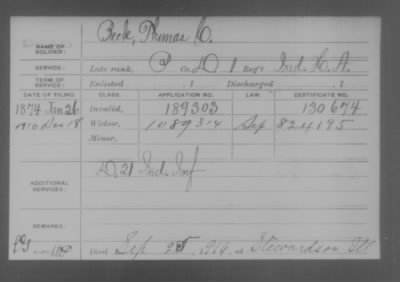 Beck, Thomas O.
NAME OF SOLDIER:
SERVICE: Late rank, Co. D 1 Reg't Ind. H. A.
TERM OF SERVICE: Enlisted , 1 Discharged , 1
DATE OF FILING. CLASS. APPLICATION NO. LAW. CERTIFICATE NO.
1874 Jan 26 Invalid, 189303 130674
1916 Dec 18 Widow, 1089314 Sep 824195
Minor,
ADDITIONAL SERVICES: D, 21 Ind. Inf
REMARKS:
Died Sep 25, 1916, at Stewardson Ill